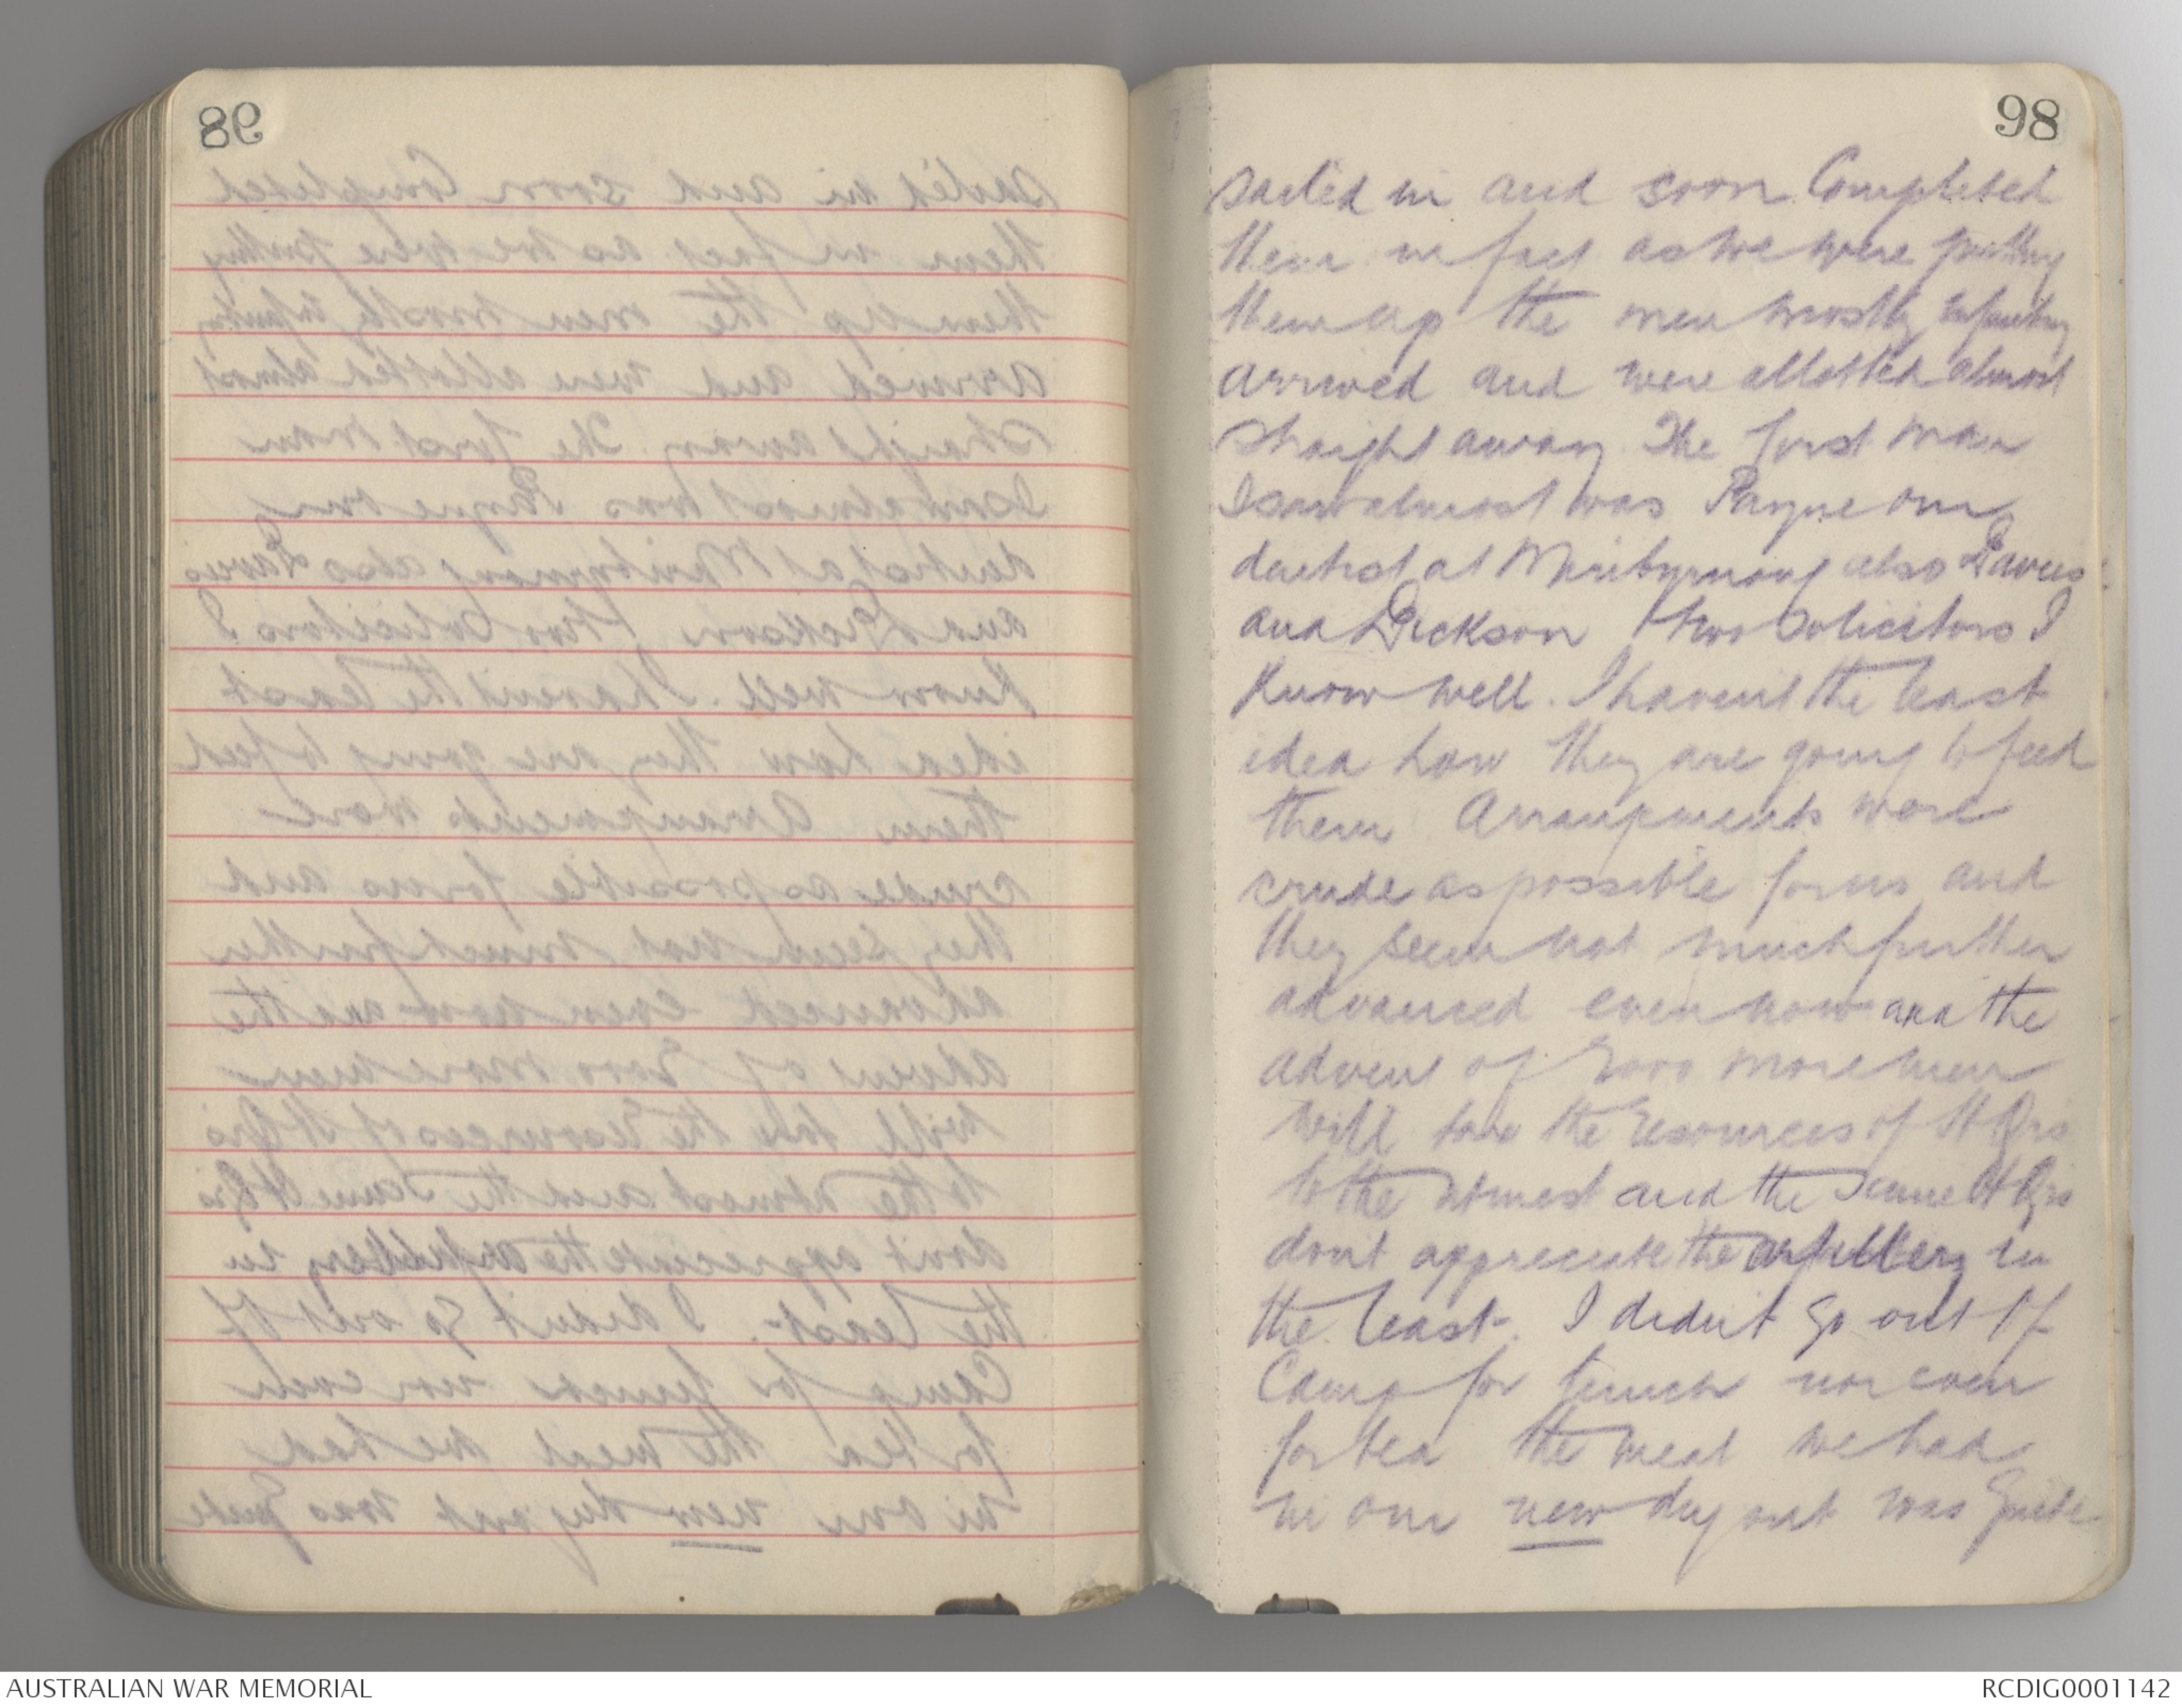 98
sailed in and soon Completed
them in fact as we were putting
them up the men mostly infantry
arrived and were allotted almost
straight away The first man
I saw almost was Payne our
dentist at Maribyrnong also Davies
and Dickson two Solicitors I
know well. I havent the least
idea how they are going to feed
them Arrangements were
crude as possible for us and
they seem not much further
advanced even now and the
advent of more men
will tax the resources of H Qrs
to the utmost and the same H Qrs
dont appreciate the artillery in
the least. I didn't go out of
Camp for lunch nor even
for tea the meal we had
in our new dug out was quite
AUSTRALIAN WAR MEMORIAL
RCDIG0001142